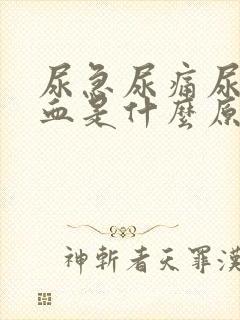 尿急尿痛尿
血是什麼原
神斬者天罪漢